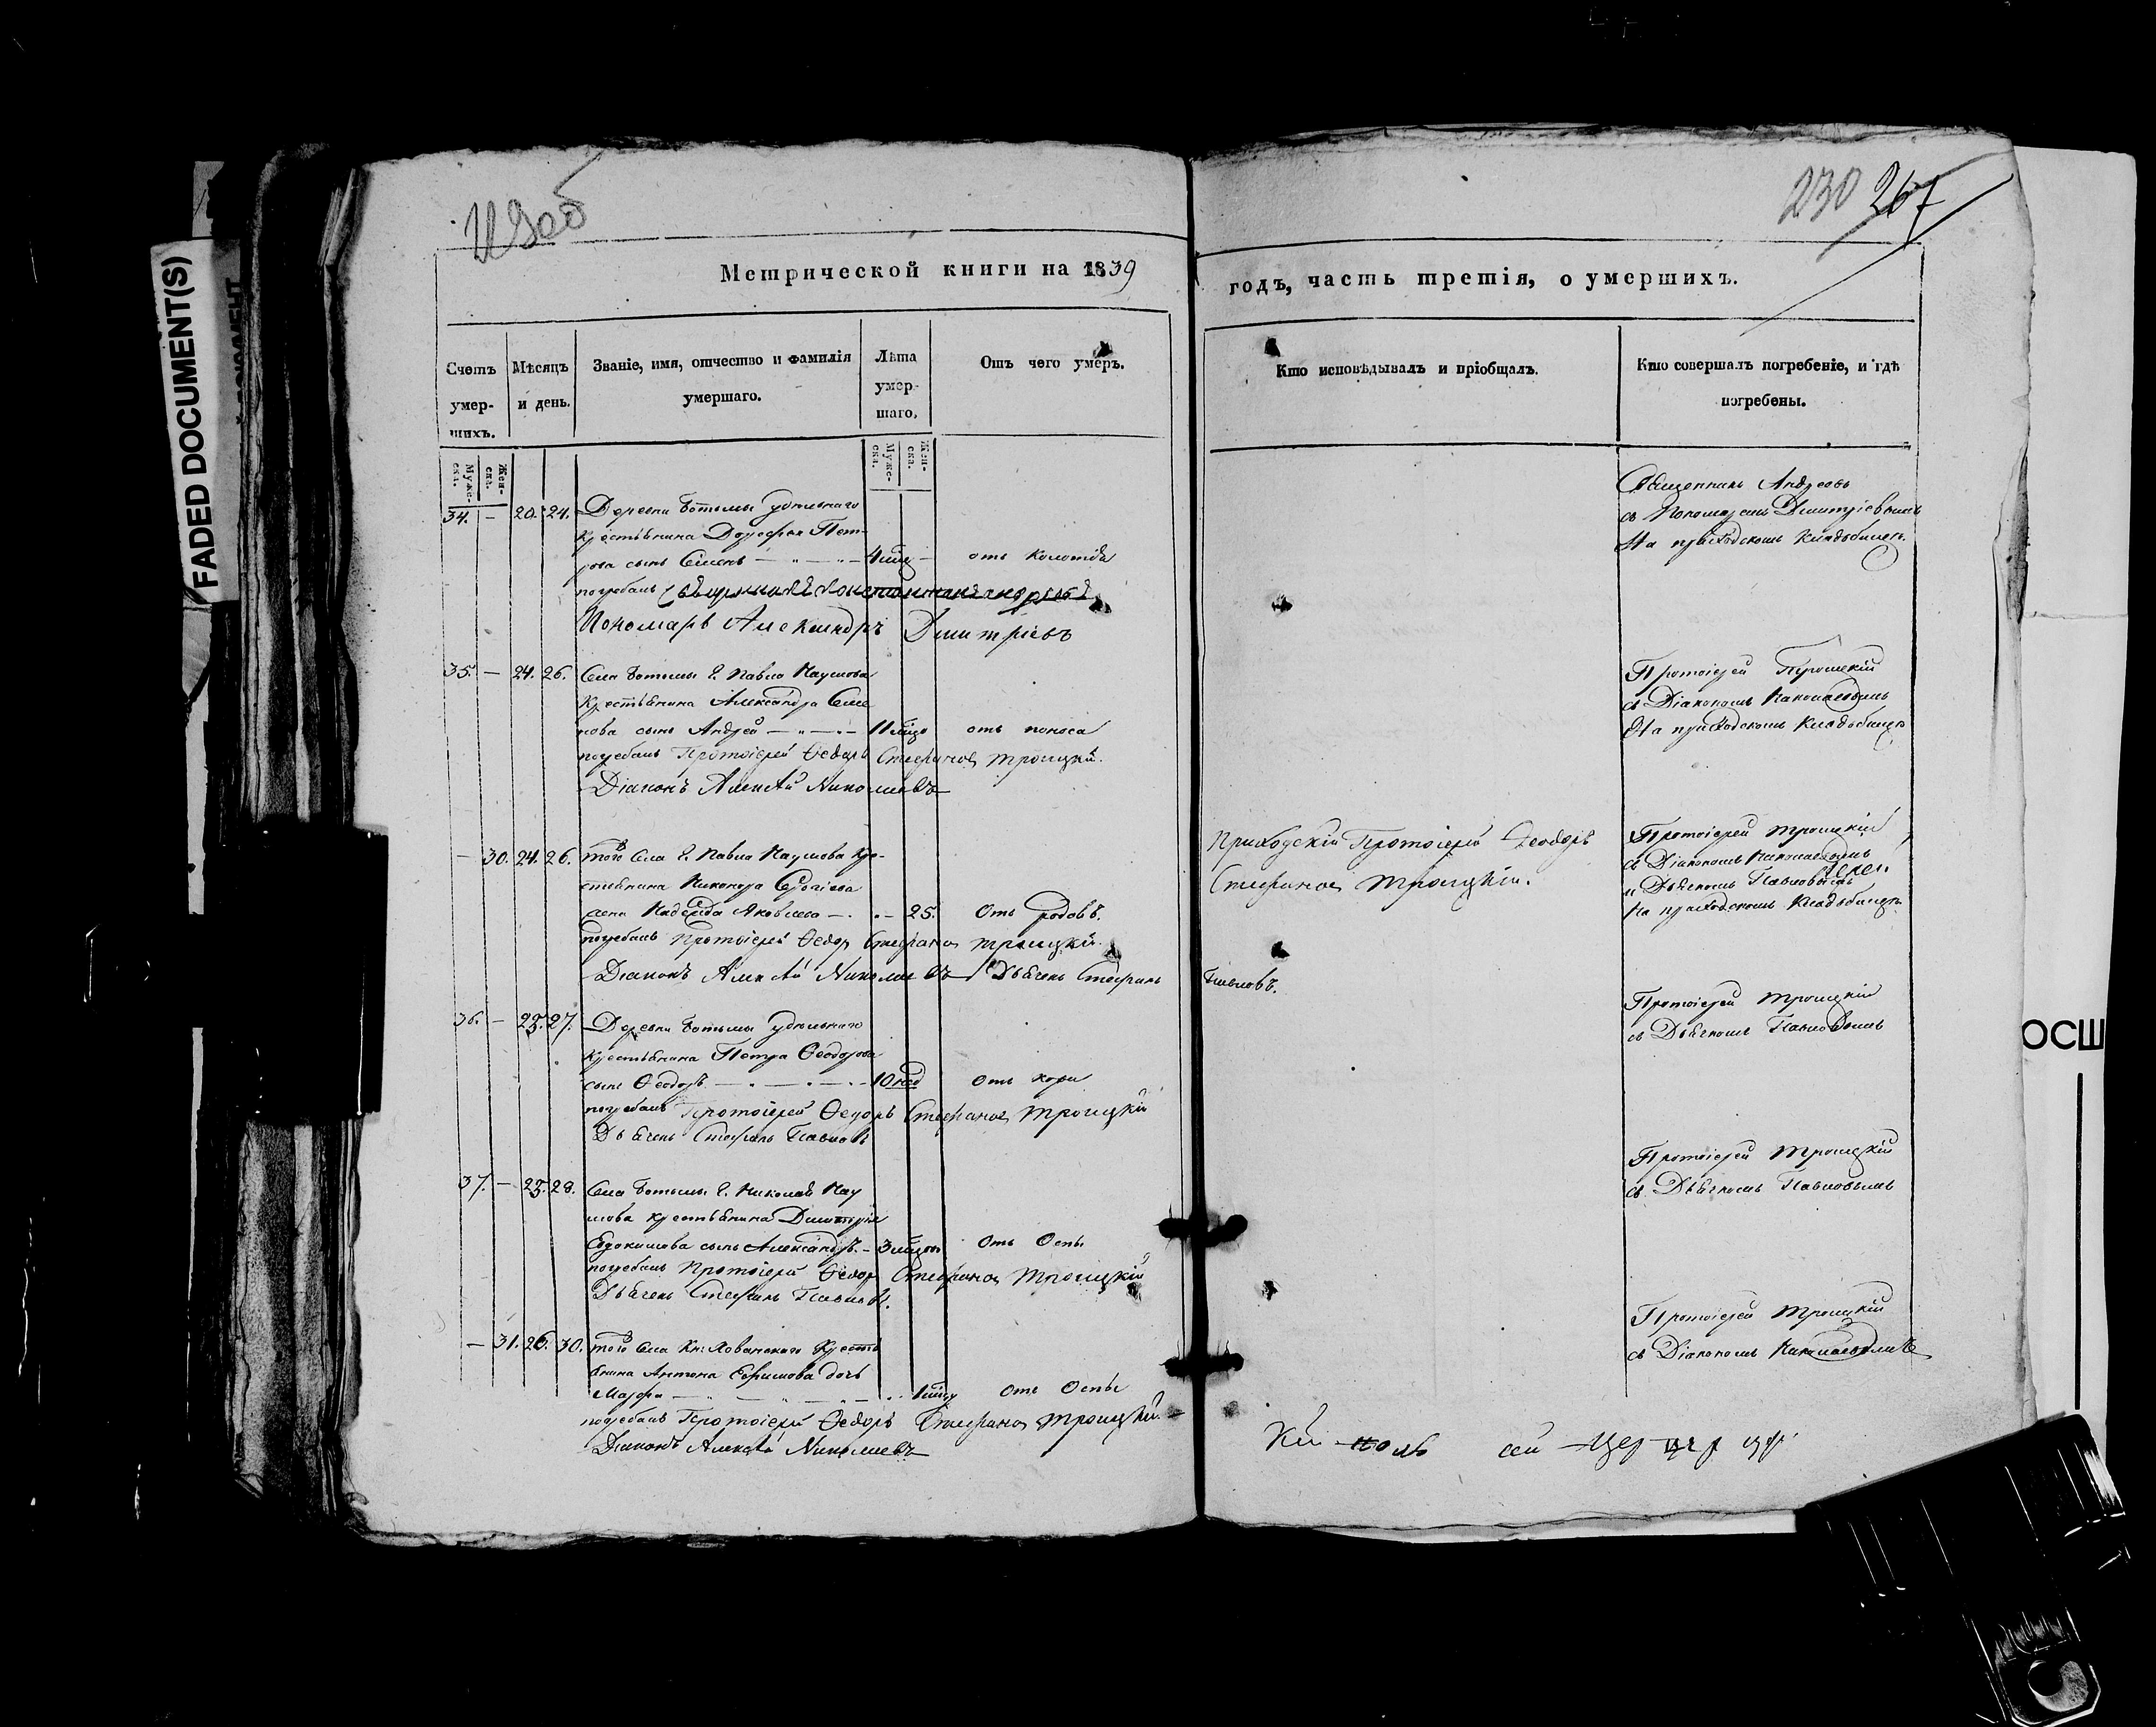 230 267
FADED DOCUMENT(S)
Метрической книги на 1839
годъ, часть третія, о умершихъ.
Счетъ умер-шихъ.
Мѣсяцъ и день.
Званіе, имя, отчество и фамилія умершаго.
Лѣта умер-шаго.
Отъ чего умеръ.
Кто исповѣдывалъ и пріобщалъ.
Кто совершалъ погребеніе, и гдѣ погребены.
Муже-ска.
Жен-ска.
Муже-ска.
Жен-ска.
34. — 20. 24. Деревни Ботьмы удѣльнаго
крестьянина Дорофея Пет-
рова сынъ Семенъ
погребалъ
Пономарь Александръ Дмитріевъ
Священникъ Андреевъ
съ Пономаремъ Дмитріевымъ
На приходскомъ кладбищѣ.
35. — 24. 26. Села Ботьмы Г. Павла Наумова
крестьянина Александра Семе
нова сынъ Андрей — 11 мѣсяц отъ поноса
погребалъ Протоіерей Ѳедоръ Стефановъ Троицкій.
Діаконъ Алексѣй Николаевъ
Протоіерей Троицкій
съ Діакономъ Николаевымъ
На приходскомъ кладбищѣ
— 30. 24. 26. того села Г. Павла Наумова кре-
стьянина Никанора Сергіева
жена Надежда Яковлева — 25. Отъ родовъ.
погребалъ Протоіерей Ѳедоръ Стефановъ Троицкій.
Діаконъ Алексѣй Николаевъ Дьячекъ Стефанъ Павловъ.
Приходскій Протоіерей Ѳеодоръ
Стефановъ Троицкій.
Протоіерей Троицкій
съ Діакономъ Николаевымъ
и Дьячкомъ Павловымъ
На приходскомъ кладбищѣ.
36. — 25. 27. Деревни Ботьмы удѣльнаго
крестьянина Петра Ѳеодорова
сынъ Ѳеодоръ — 10 Отъ кори
погребалъ Протоіерей Ѳедоръ Стефановъ Троицкій
Дьячекъ Стефанъ Павловъ
Протоіерей Троицкій
съ Дьячкомъ Павловымъ
37. — 25. 28. Села Ботьмы Г. Николая Нау
мова крестьянина Димитрія
Евдокимова сынъ Александръ — 3 Отъ Оспы
погребалъ Протоіерей Ѳедоръ Стефановъ Троицкій
Дьячекъ Стефанъ Павловъ.
Протоіерей Троицкій
съ Дьячкомъ Павловымъ
— 31. 26. 30. того села Кн. Хованскаго Крестъ
янина Антона Ефимова дочь
Марфа — Отъ Оспы
погребалъ Протоіерей Ѳедоръ Стефановъ Троицкій.
Діаконъ Алексѣй Николаевъ
Протоіерей Троицкій
съ Діакономъ Николаевымъ